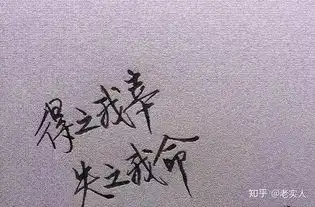 得之我幸
失之我命
知乎 @老实人